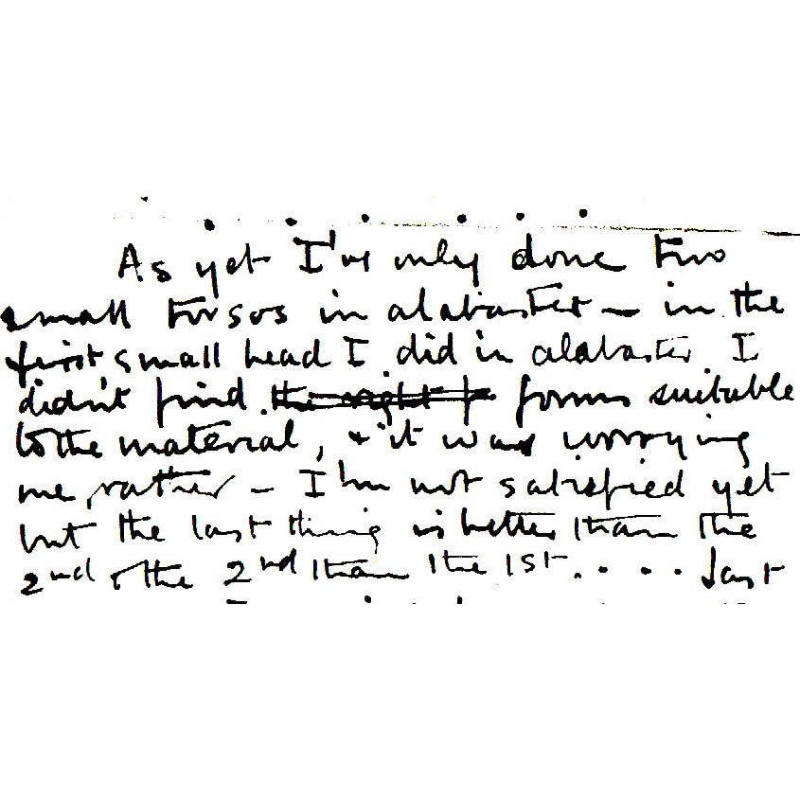 As yet I've only done two
small torsos in alabaster – in the
first small head I did in alabaster I
didn't find the right f forms suitable
to the material, & it was worrying
me, rather – I'm not satisfied yet
but the last thing is better than the
2nd & the 2nd than the 1st. . . . . last